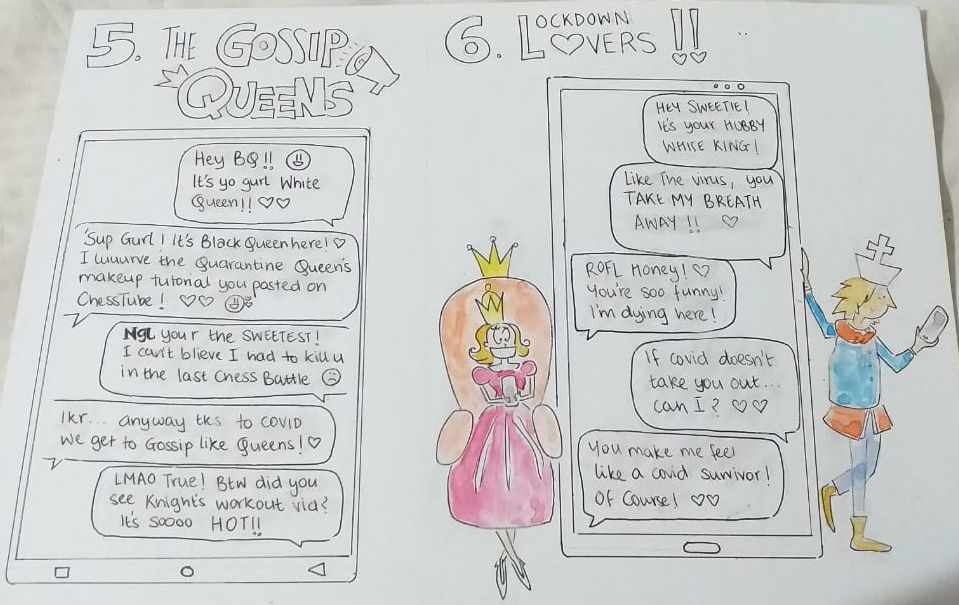 5. THE GOSSIP
QUEENS
Hey BQ!!
It's yo gurl White
Queen!! ♡♡
'Sup Gurl! It's Black Queen here! ♡
I luuurve the Quarantine Queen's
makeup tutorial you posted on
ChessTube! ♡♡
NGL your the SWEETEST!
I can't blieve I had to kill u
in the last Chess Battle ☹
Ikr... anyway tks to COVID
we get to Gossip like Queens! ♡
LMAO True! Btw did you
see Knight's workout vid?
It's soooo HOT!!
6. LOCKDOWN
LOVERS!!
HEY SWEETIE!
It's your HUBBY
WHITE KING!
Like The virus, you
TAKE MY BREATH
AWAY!! ♡
ROFL Honey! ♡
You're soo funny!
I'm dying here!
If covid doesn't
take you out...
can I? ♡♡
You make me feel
like a covid survivor!
Of Course! ♡♡